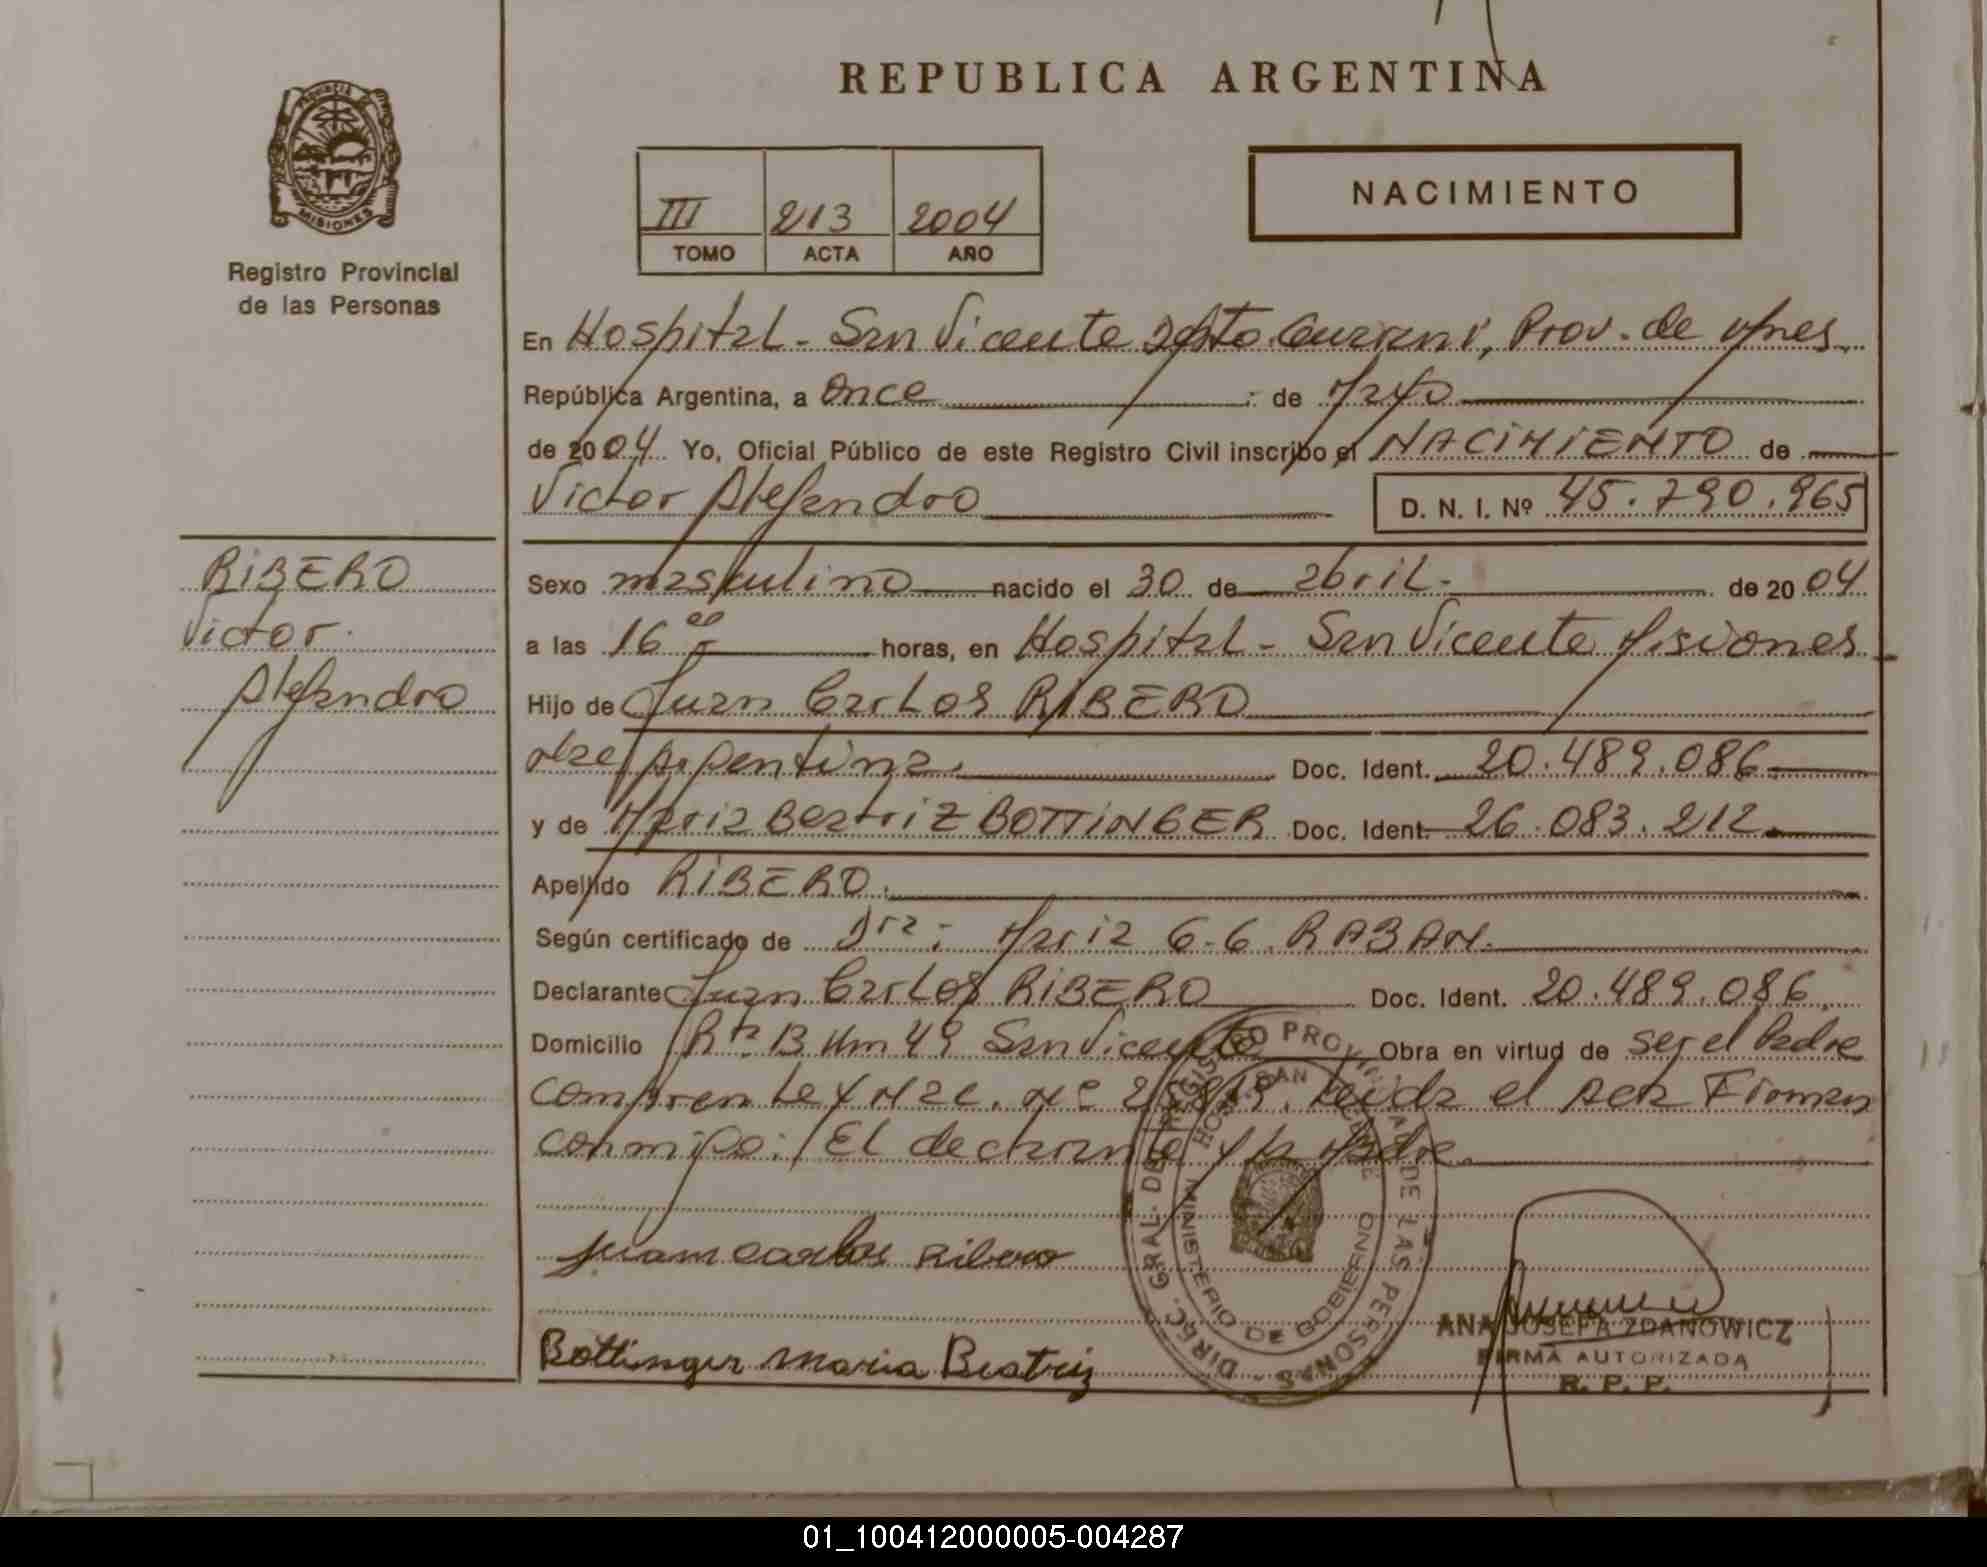 REPUBLICA ARGENTINA
PROVINCIA DE
MISIONES
Registro Provincial
de las Personas
III 213 2004
TOMO ACTA AÑO
NACIMIENTO
En Hospital - San Vicente Dpto. Guarani, Prov. de Mnes.
República Argentina, a Once de Mayo
de 2004 Yo, Oficial Público de este Registro Civil inscribo el NACIMIENTO de
Victor Alejandro D. N. I. Nº 45.790.965
RIBERO
Victor
Alejandro
Sexo masculino nacido el 30 de abril - de 2004
a las 16 00 horas, en Hospital - San Vicente Misiones
Hijo de Juan Carlos RIBERO
Argentina. Doc. Ident. 20.489.086
y de Maria Beatriz BOTTINGER Doc. Ident. 26.083.212
Apellido RIBERO.
Según certificado de Dra: Maria G. G. RABAN.
Declarante Juan Carlos RIBERO Doc. Ident. 20.489.086.
Domicilio Rta. 13 Km 49 San Vicente Obra en virtud de ser el Padre
Leida el Acta Firman
conmigo: El declarante y la Madre.
Juan carlos Ribero
Bottinger maria Beatriz
DIREC. GRAL. DEL REGISTRO PROVINCIAL DE LAS PERSONAS
MINISTERIO DE GOBIERNO
ANA JOSEFA ZDANOWICZ
FIRMA AUTORIZADA
R. P. P.
01_100412000005-004287